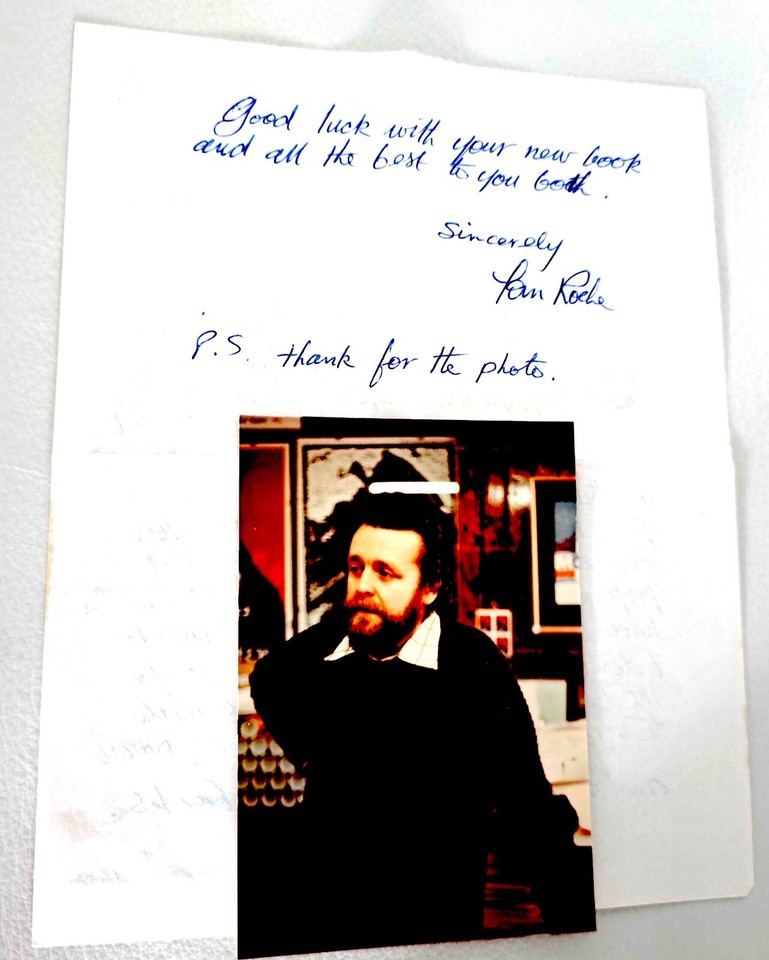 Good luck with your new book
and all the best to you both.
Sincerely
Tom Roche
P.S. thank for the photo.